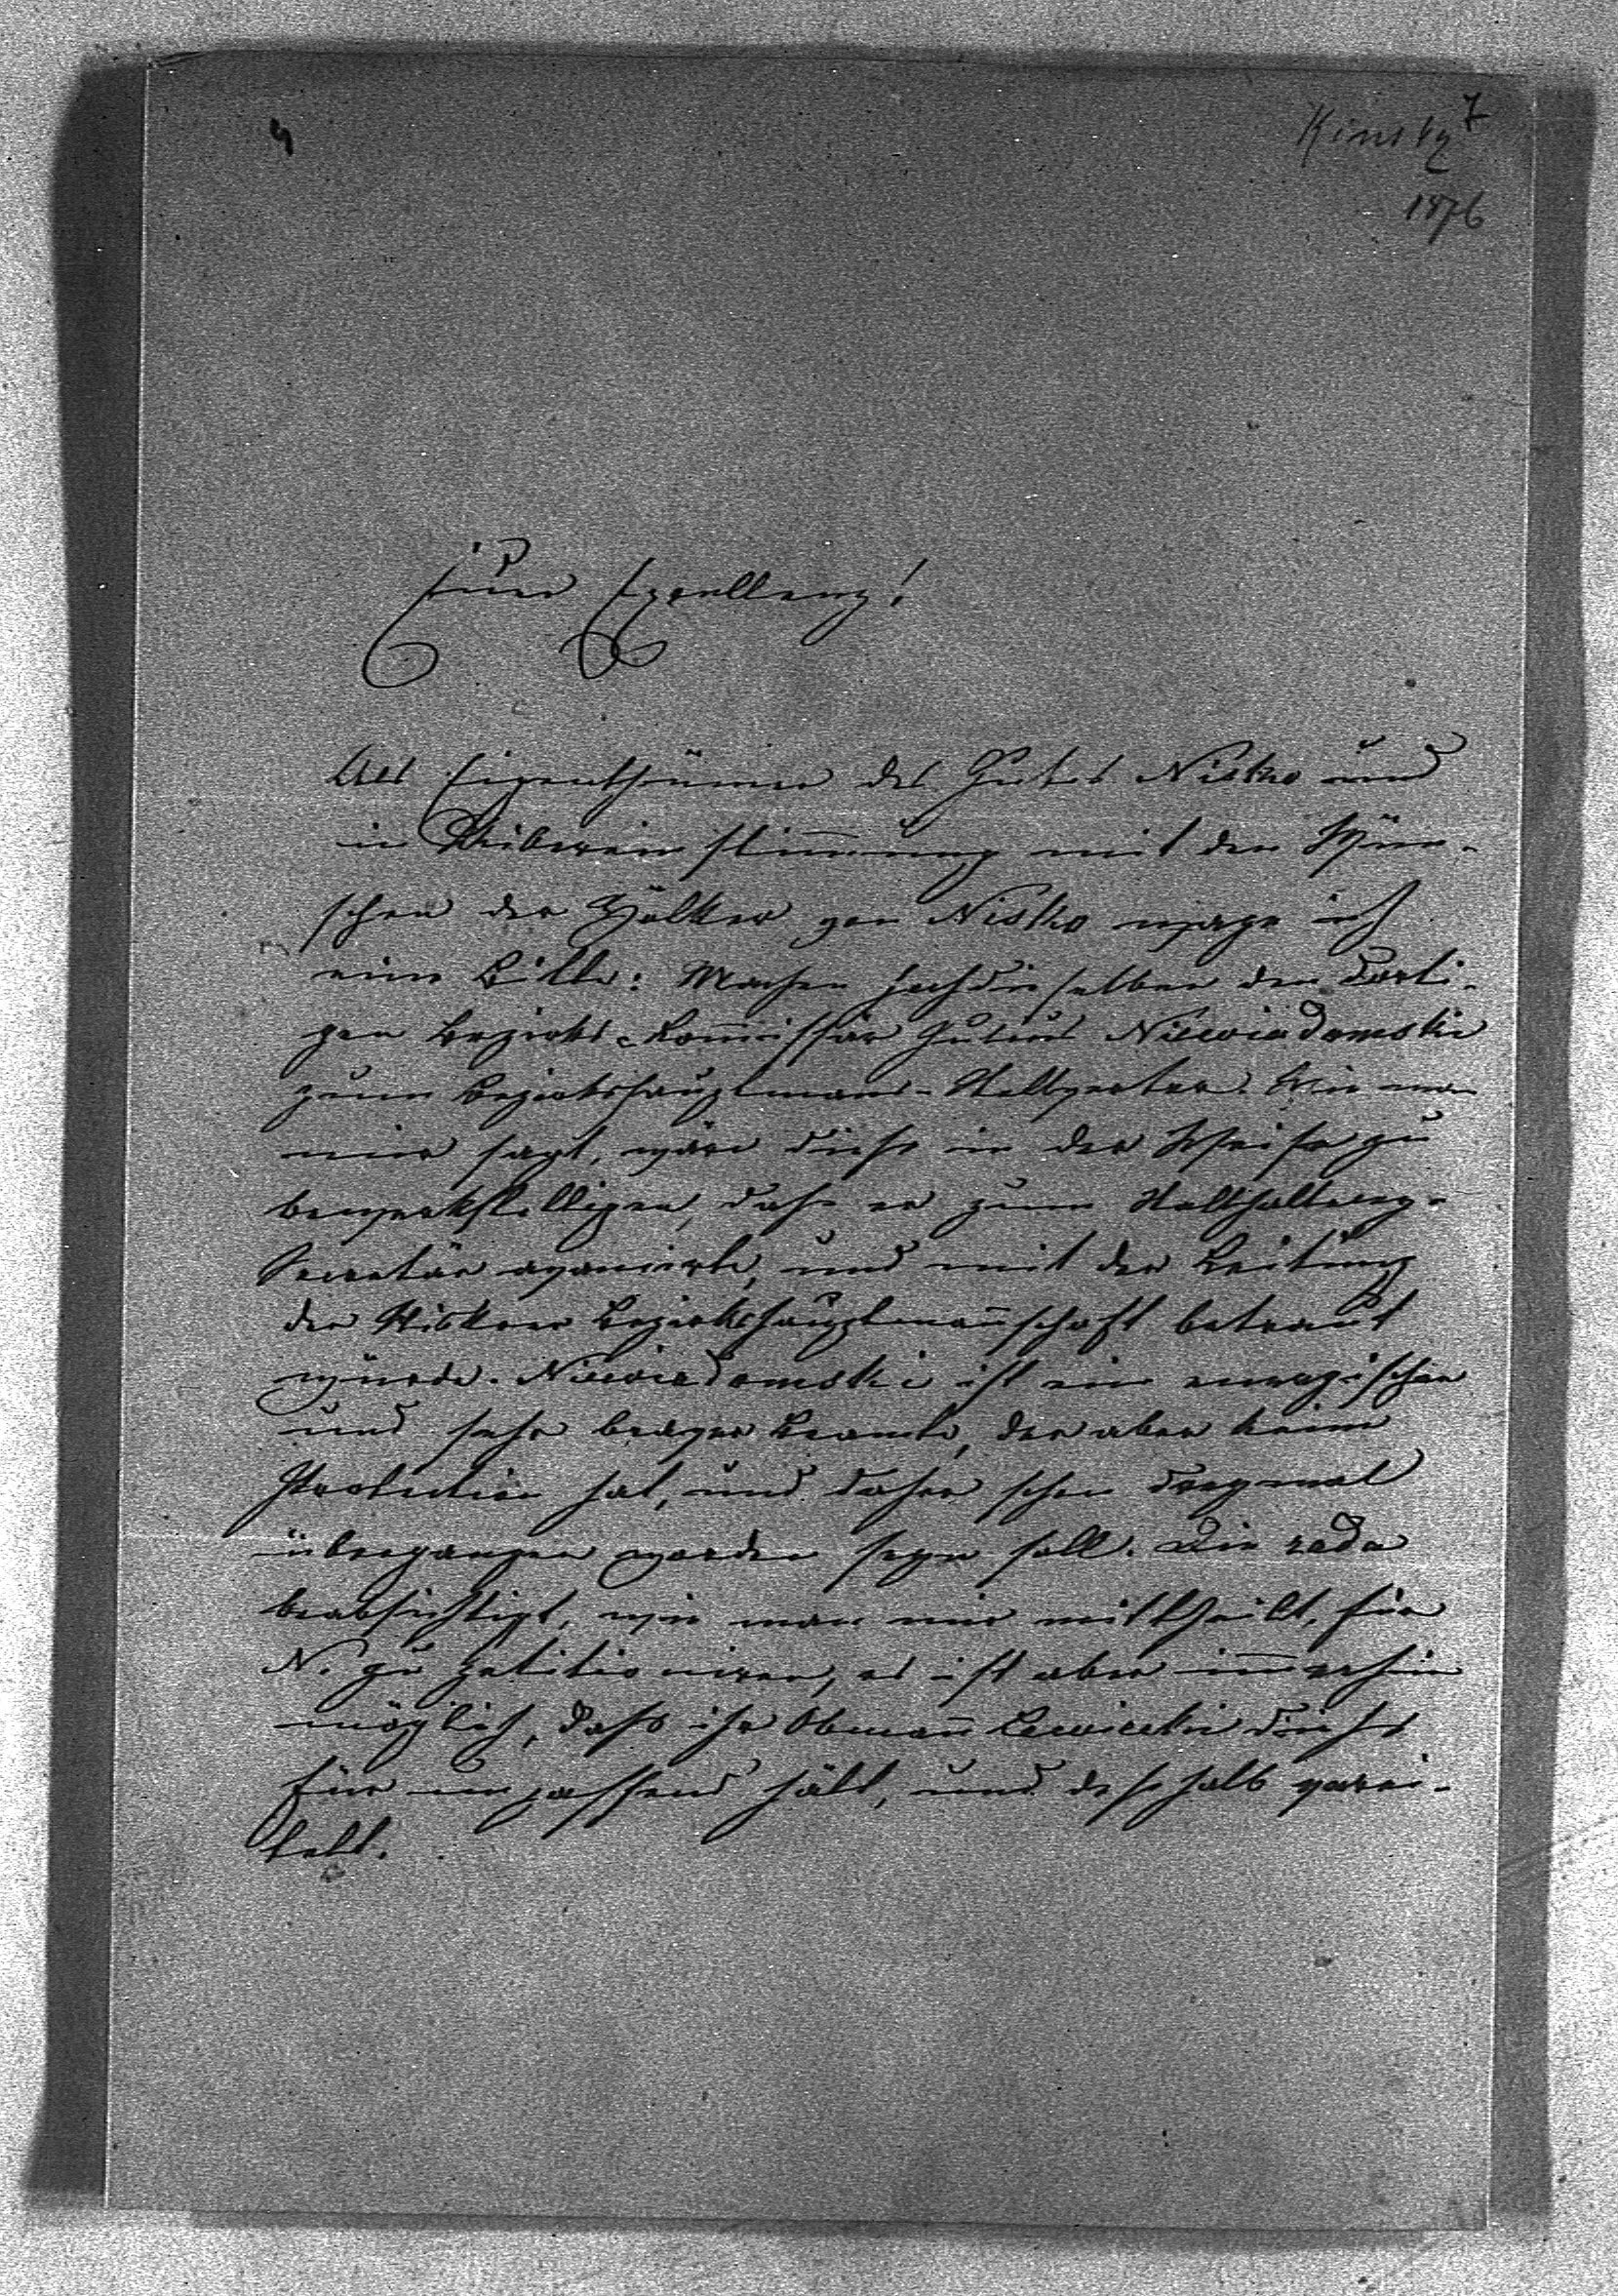 4
Kinsky 7
1876
Eure Excellenz!
Als Eigenthümer des Gutes Nisko und
in Uibereinstim̄ung mit den Wün-
schen der Völker von Nisko wage ich
eine Bitte: Machen hochdieselben den dorti-
gen Bezirks-Kom̄issär Julius Niewiadomski
zum Bezirkshauptmann-Stellvertreter. Wie man
mir sagt, wäre dieß in der Weise zu
bewerkstelligen, daß er zum Statthalterey-
Secretär avancirte, und mit der Leitung
der Niskoer Bezirkshauptman̄schaft betraut
würde. Niewiadomski ist ein energischer
und sehr braver Beamte, der aber keine
Protection hat, und daher schon dreymal
übergangen worden seyn soll. Die rada
beabsichtigt, wie man mir mittheilt, für
N. zu petitioniren, es ist aber im̄erhin
möglich, daß ihr Obman̄ Lewicki dieß
für unpassend hält, und deßhalb verei-
telt.